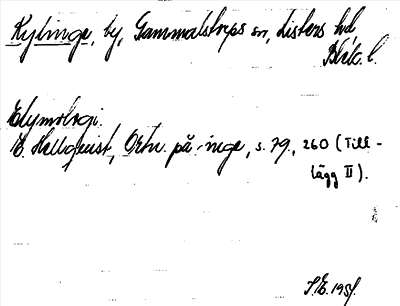 Kylinge, by, Gammalstorps sn, Listers hd
Blek. l.
Etymologi.
E. Hellquist, Ortn. på -inge, s. 79, 260 (Till-
lägg II).
S.E. 1951.